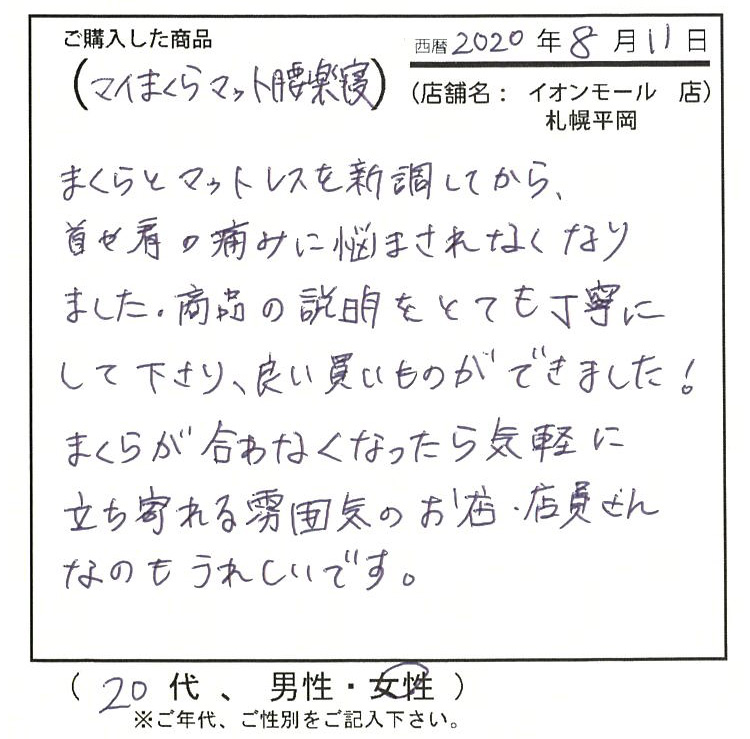 ご購入した商品
西暦2020年8月11日
(マイまくらマット腰楽寝)
(店舗名: イオンモール 店)
札幌平岡
まくらとマットレスを新調してから、
首や肩の痛みに悩まされなくなり
ました。商品の説明をとても丁寧に
して下さり、良い買いものができました!
まくらが合わなくなったら気軽に
立ち寄れる雰囲気のお店・店員さん
なのもうれしいです。
(20代、男性・女性)
※ご年代、ご性別をご記入下さい。